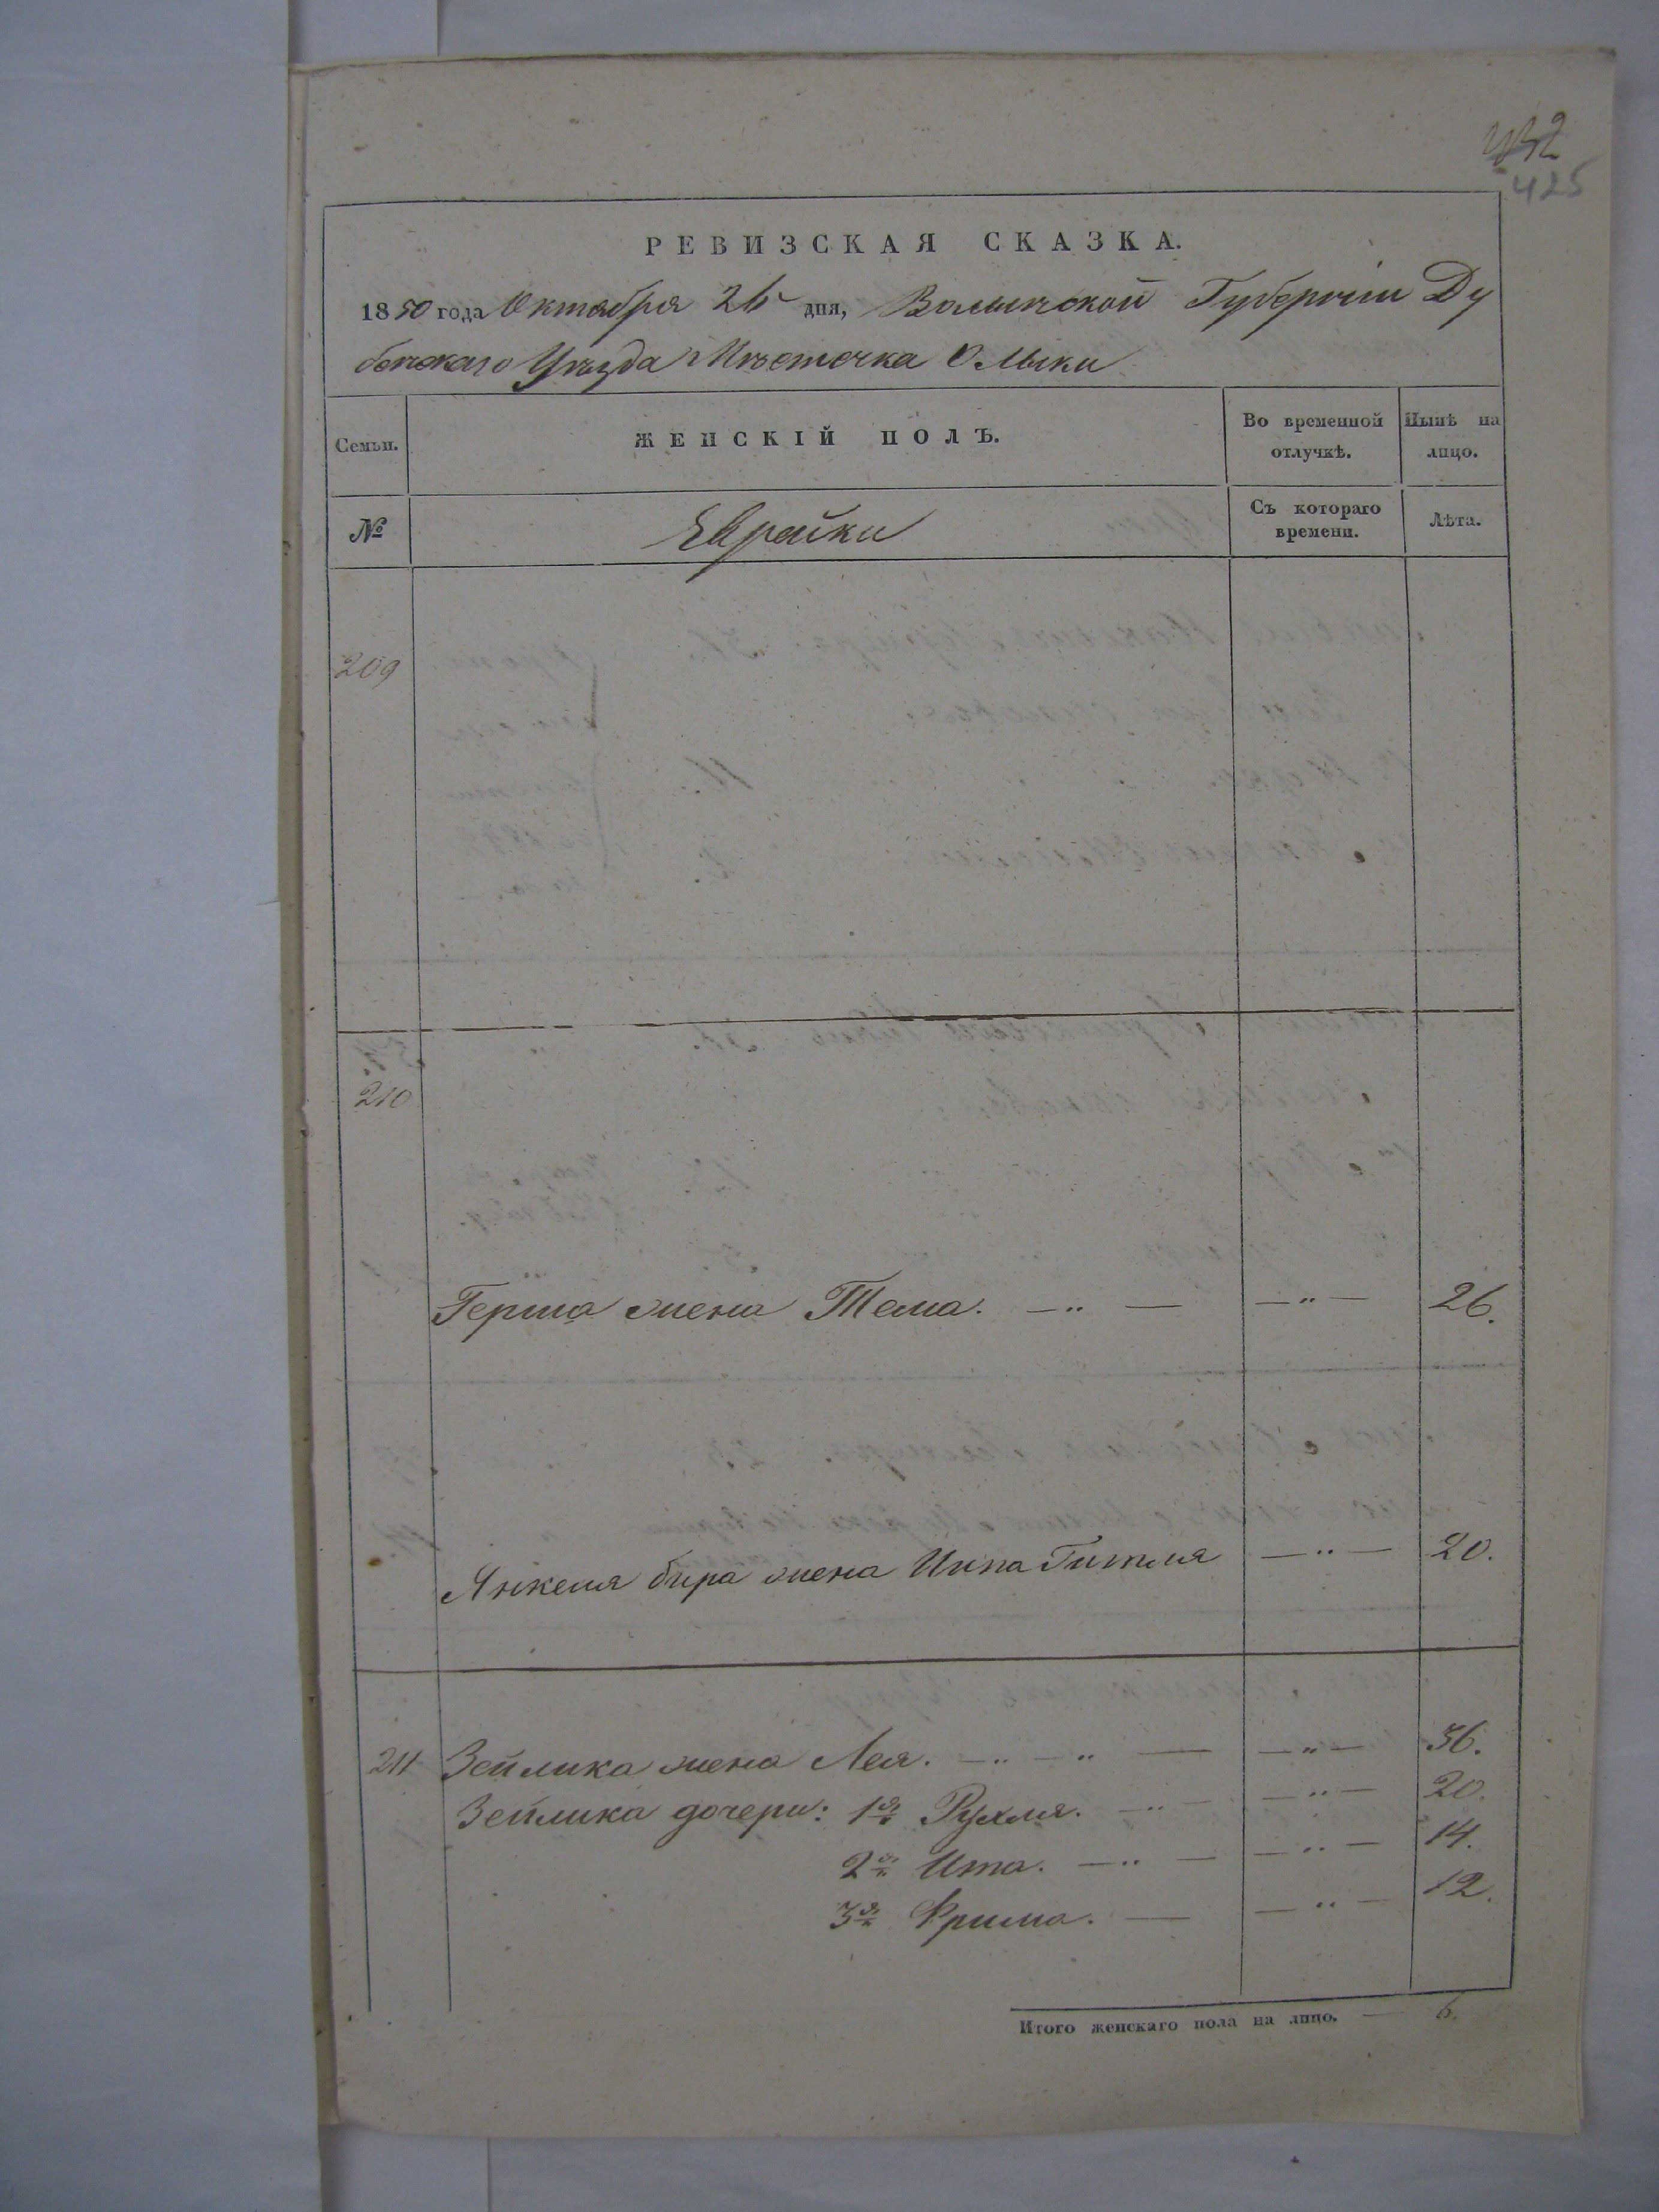 432
425
РЕВИЗСКАЯ СКАЗКА.
1850 года Октября 26 дня, Волынской Губерніи Ду
бенскаго Уѣзда Мѣстечка Олыки
Семьи.
ЖЕНСКІЙ ПОЛЪ.
Во временной отлучкѣ.
Нынѣ на лицо.
№
Еврейки
Съ котораго времени.
Лѣта.
209
210
Герша жена Тема. —〃— —〃— 26.
Янкеля бера жена Ципа Гитля —〃— 20.
211 Зейлика жена Лея. —〃—〃— —〃— 36.
Зейлика дочери: 1я Рухля. —〃— —〃— 20.
2я Ита. —〃— —〃— 14.
3я Фрима. — —〃— 12.
Итого женскаго пола на лицо. — 6.